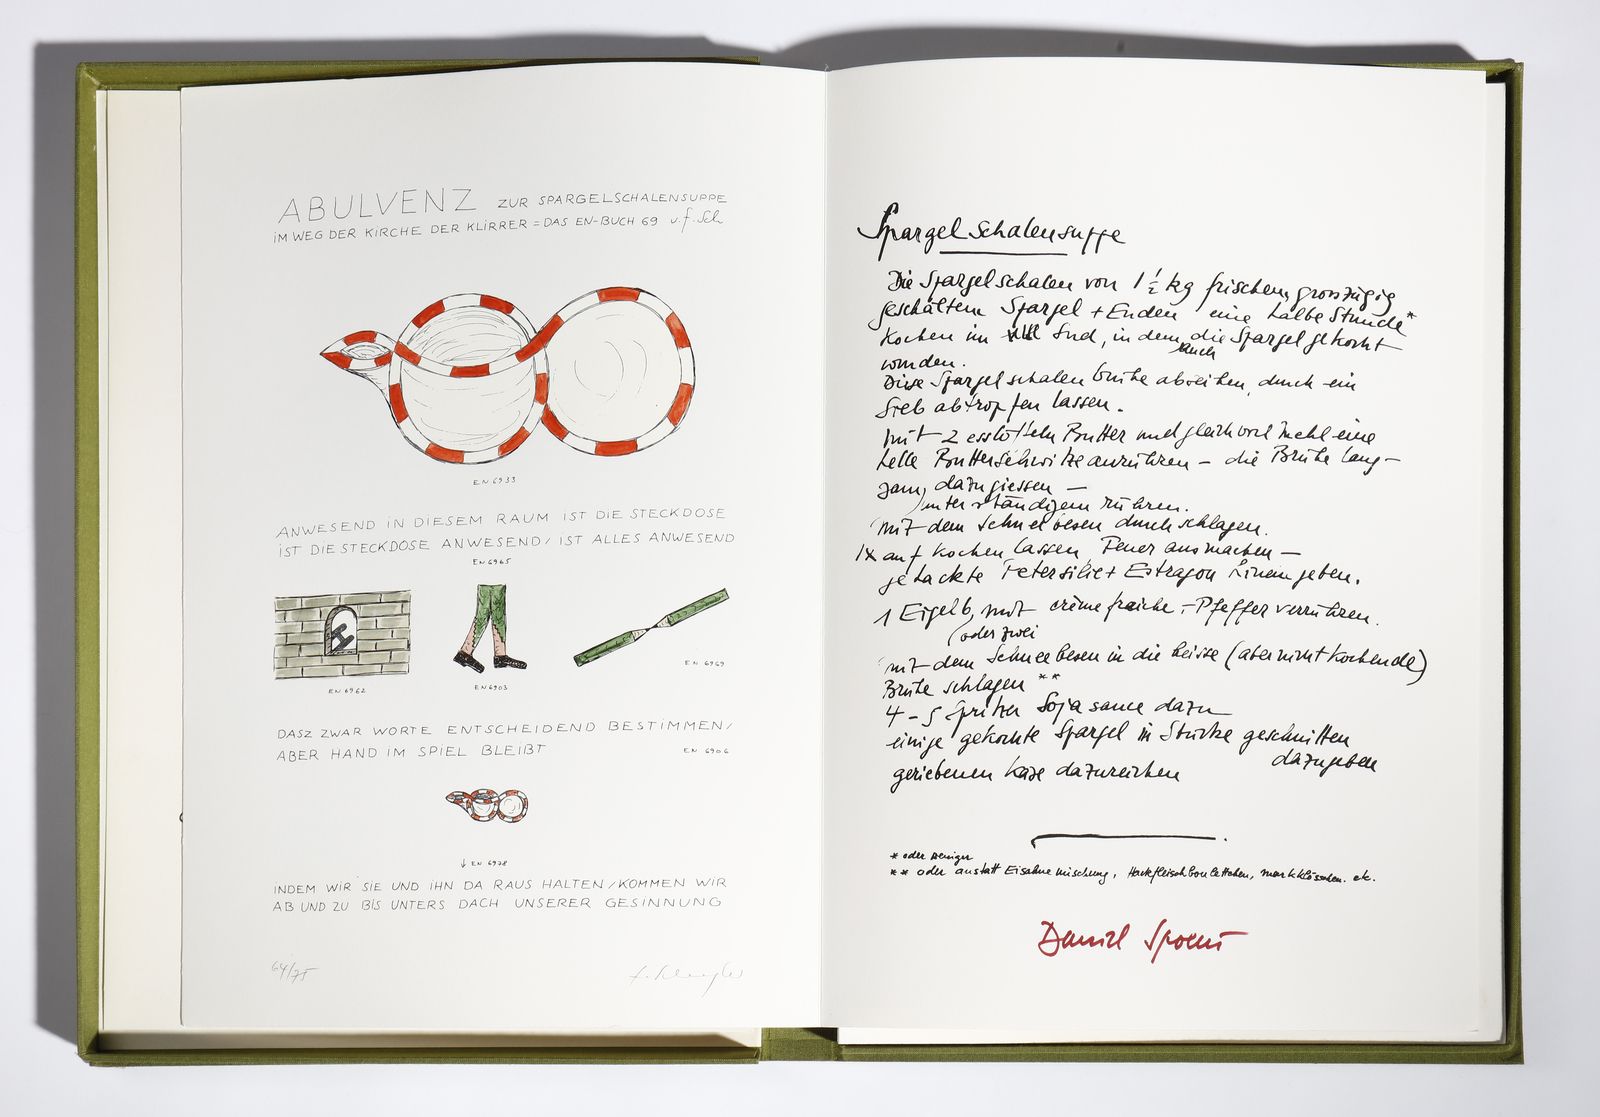 ABULVENZ ZUR SPARGELSCHALENSUPPE
IM WEG DER KIRCHE DER KLIRRER = DAS EN-BUCH 69 v. f. Sch
EN 6933
ANWESEND IN DIESEM RAUM IST DIE STECKDOSE
IST DIE STECKDOSE ANWESEND / IST ALLES ANWESEND
EN 6965
EN 6962
EN 6903
EN 6969
DASZ ZWAR WORTE ENTSCHEIDEND BESTIMMEN /
ABER HAND IM SPIEL BLEIBT
EN 6906
↓ EN 6978
INDEM WIR SIE UND IHN DA RAUS HALTEN / KOMMEN WIR
AB UND ZU BIS UNTERS DACH UNSERER GESINNUNG
64/75
Spargelschalensuppe
Die Spargelschalen von 1 ½ kg frischem, grosszügig
geschältem Spargel + Enden eine halbe Stunde*
kochen im Sud, in dem die Spargel gekocht
auch
wurden.
Diese Spargelschalenbrühe abseihen, durch ein
Sieb abtropfen lassen.
mit 2 esslöffeln Butter und gleichviel Mehl eine
helle Butterschwitze anrühren – die Brühe lang-
sam dazugiessen –
unter ständigem rühren.
mit dem Schneebesen durchschlagen.
1x aufkochen lassen, Feuer ausmachen –
gehackte Petersilie + Estragon hineingeben.
1 Eigelb, mit crème fraiche – Pfeffer verrühren.
(oder zwei
mit dem Schneebesen in die heisse (aber nicht kochende)
Brühe schlagen **
4 – 5 Spritzer Sojasauce dazu
einige gekochte Spargel in Stücke geschnitten
dazugeben
geriebenen Käse dazureichen
* oder weniger
** oder anstatt Eisahnemischung, Hackfleischboulettchen, markklösschen. etc.
Daniel Spoerri